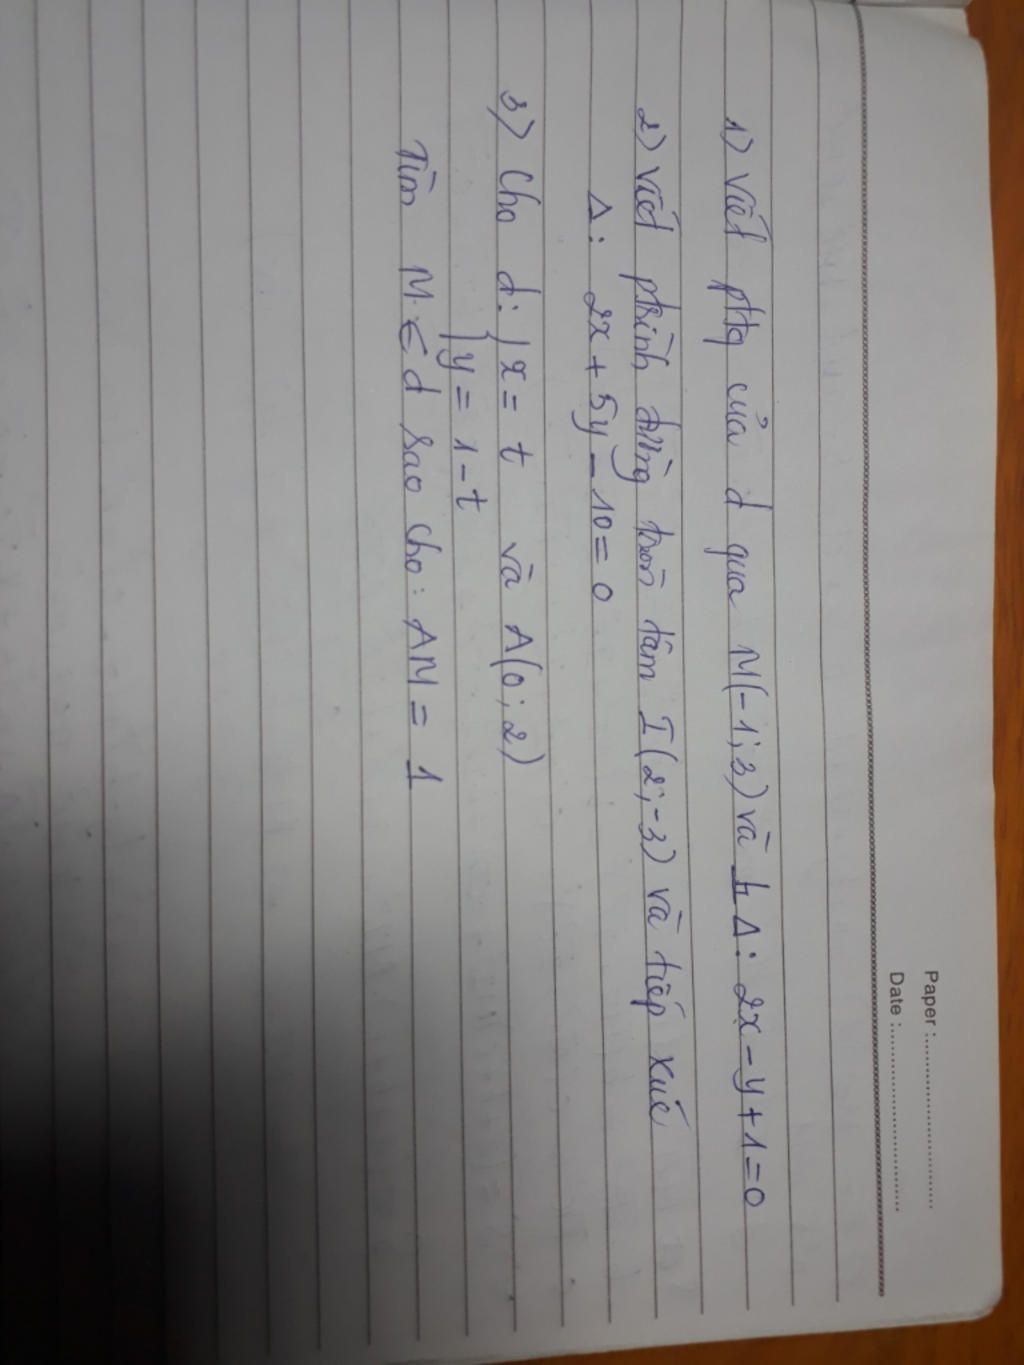 Paper :........................
Date :........................
1) Viết pttq của d qua M(-1; 3) và ⊥ Δ: 2x - y + 1 = 0
2) Viết ptrình đường tròn tâm I (2; -3) và tiếp xúc
Δ: 2x + 5y - 10 = 0
3) Cho d: { x = t và A(0; 2)
y = 1 - t
Tìm M ∈ d sao cho: AM = 1